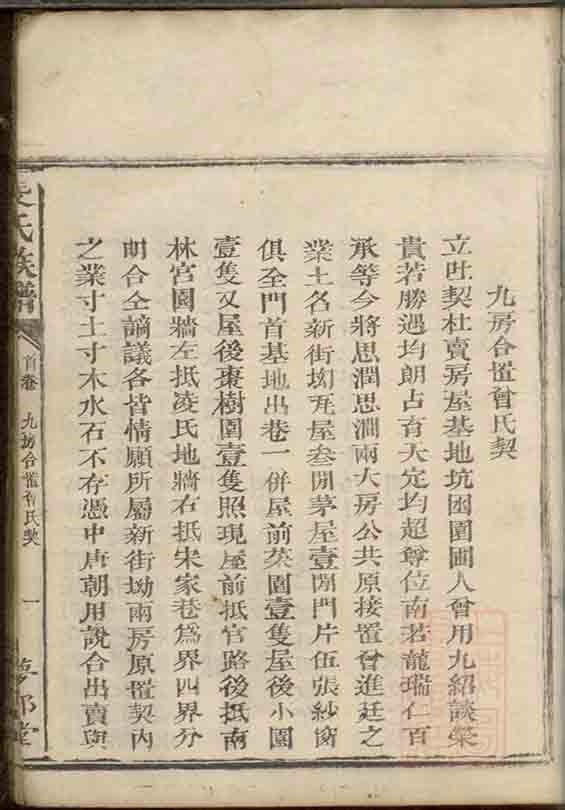 九房合置曾氏契
立吐契杜賣房屋基地坑囷園圃人曾用九紹談榮
貴若勝遇均朗占育天定均超尊位南若龍瑞仁百
承等今將思潤思澗兩大房公共原接置曾進廷之
業土名新街坳瓦屋叁間茅屋壹間門片伍張紗窗
俱全門首基地出巷一併屋前菜園壹隻屋後小園
壹隻又屋後棗樹園壹隻照現屋前抵官路後抵南
林宫園牆左抵凌氏地牆右抵宋家巷爲界四界分
明合仝謪議各皆情願所屬新街坳兩房原置契内
之業寸土寸木水石不存憑中唐朝用說合出賣與
氏族譜
首卷
九房合置曾氏契
一
堂